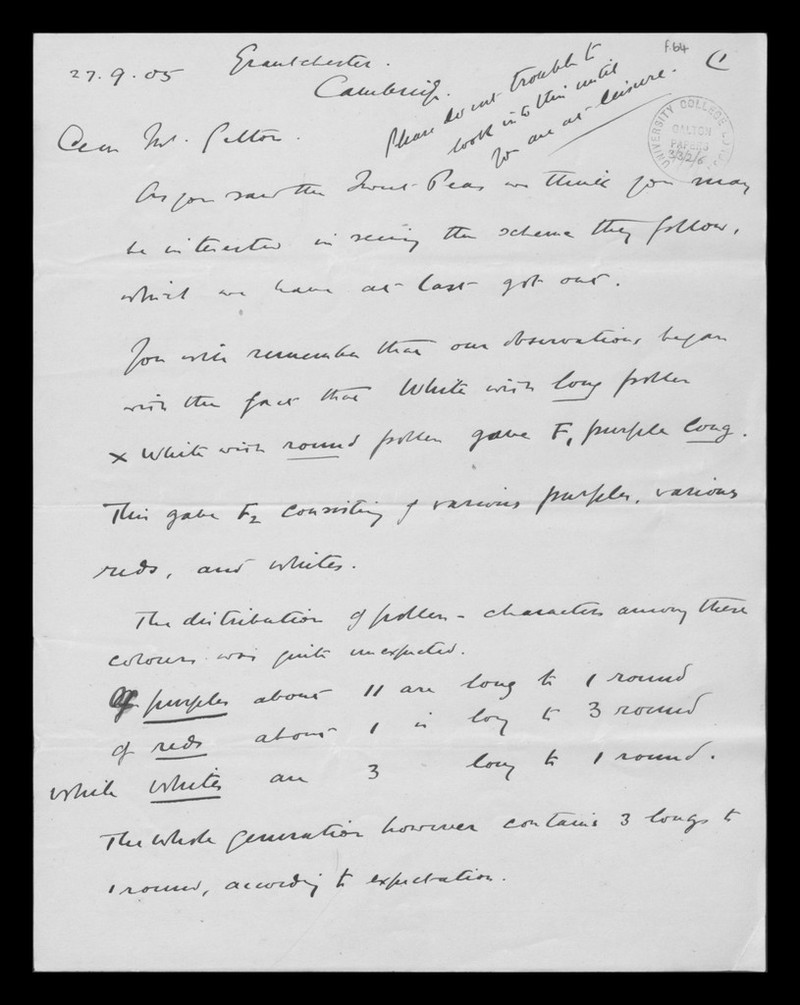 f.64
(1
27.9.05
Grantchester.
Cambridge.
Please do not trouble to
look into this until
you are at leisure.
UNIVERSITY COLLEGE
GALTON
PAPERS
3/3/2/6
Dear Mr. Galton.
As you saw the Sweet Peas we think you may
be interested in seeing the scheme they follow,
which we have at last got out.
You will remember that our observations began
with the fact that White with long pollen
x White with round pollen gave F1 purple long.
This gave F2 consisting of various purples, various
reds, and whites.
The distribution of pollen-characters among these
colours was quite unexpected.
Of purples about 11 are long to 1 round
of reds about 1 is long to 3 round
While whites are 3 long to 1 round.
The whole generation however contains 3 longs to
1 round, according to expectation.